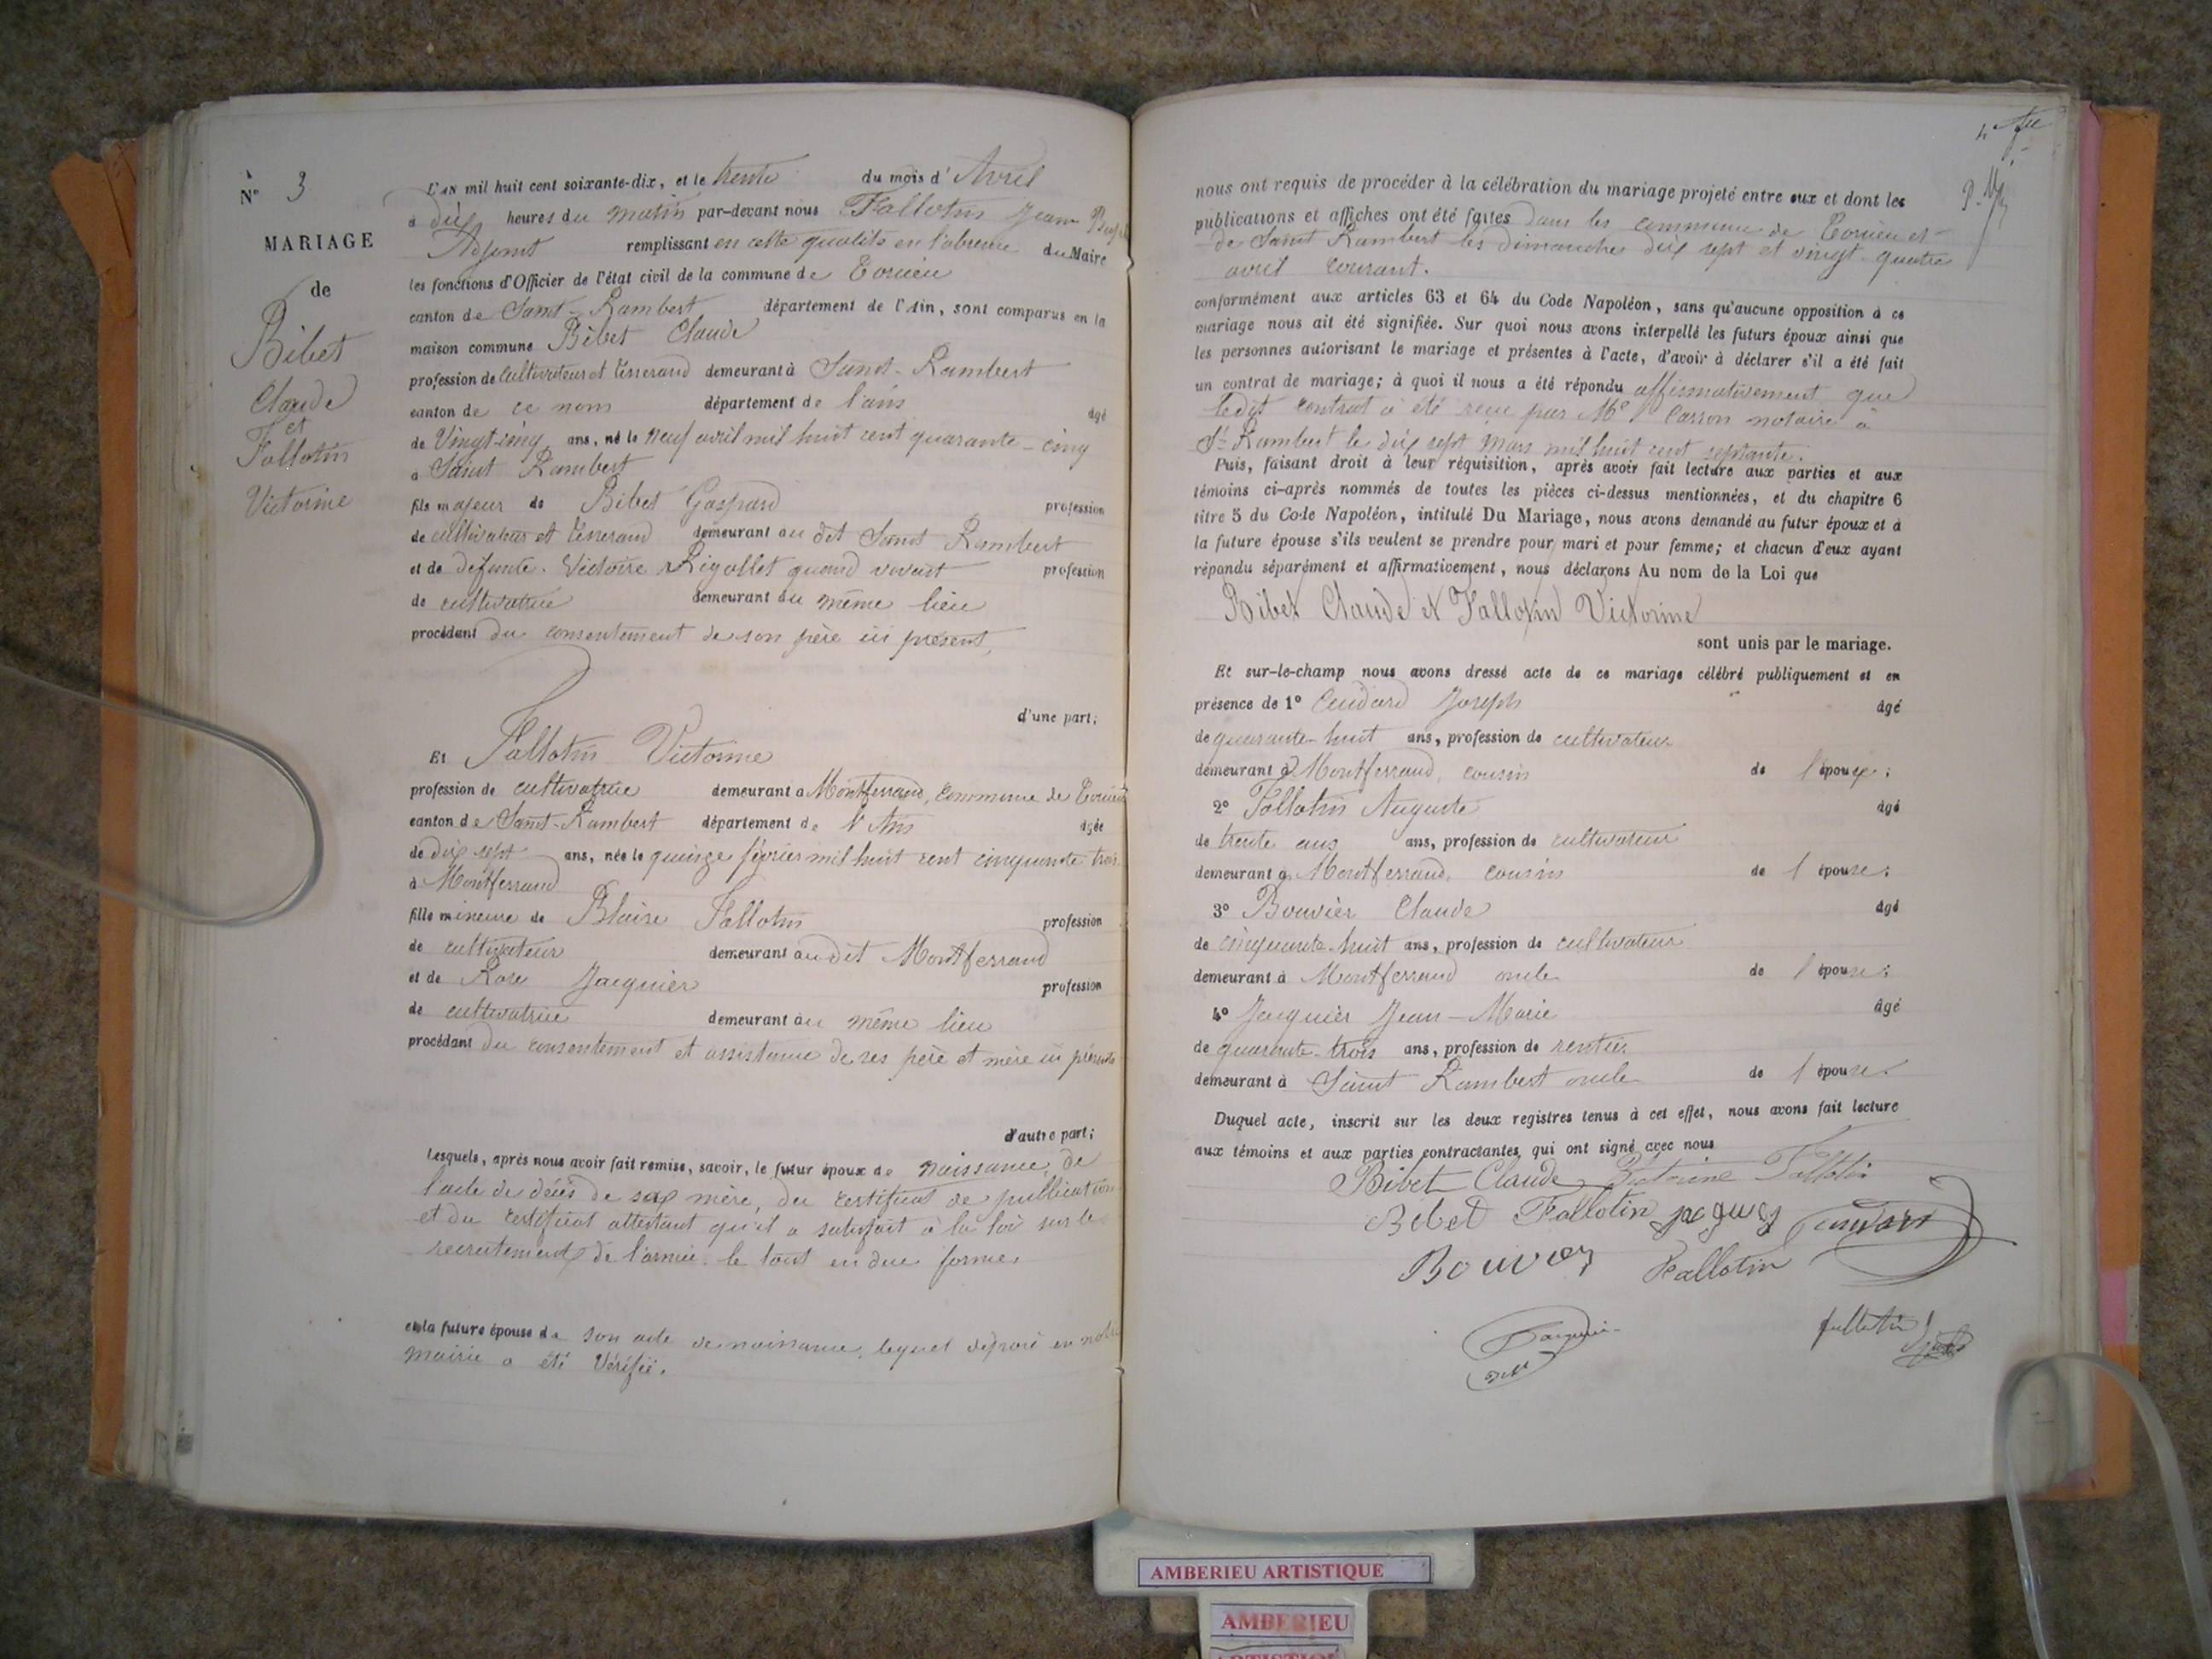 N° 3
MARIAGE
de
Bibet
Claude
et
Fallotin
Victorine
L'AN mil huit cent soixante-dix, et le trente du mois d'Avril
à dix heures du matin par-devant nous Fallotin Jean
Adjoint remplissant en cette qualité en l'absence du Maire
les fonctions d'Officier de l'état civil de la commune de Torcieu
canton de Saint-Rambert département de l'Ain, sont comparus en la
maison commune Bibet Claude
profession de Cultivateur et tisserand demeurant à Saint-Rambert
canton de ce nom département de l'ain âgé
de Vingt-cinq ans, né le neuf avril mil huit cent quarante-cinq
à Saint Rambert
fils majeur de Bibet Gaspard profession
de cultivateur et tisserand demeurant au dit Saint Rambert
et de défunte Victoire Rigollet quand vivait profession
de cultivatrice demeurant au même lieu
procédant du consentement de son père ici présent,
d'une part;
Et Fallotin Victorine
profession de cultivatrice demeurant à Montferrand, commune de Torcieu
canton de Saint-Rambert département de l'Ain âgée
de dix sept ans, née le quinze février mil huit cent cinquante-trois
à Montferrand
fille mineure de Blaise Fallotin profession
de cultivateur demeurant audit Montferrand
et de Rose Jacquier profession
de cultivatrice demeurant au même lieu
procédant du consentement et assistance de ses père et mère ici présents
d'autre part;
Lesquels, après nous avoir fait remise, savoir, le futur époux de naissance, de
l'acte de décès de sa mère, du certificat de publication
et du certificat attestant qu'il a satisfait à la loi sur le
recrutement de l'armée. le tout en due forme.
et la future épouse de son acte de naissance, lequel déposé en notre
mairie a été vérifié.
nous ont requis de procéder à la célébration du mariage projeté entre eux et dont les
publications et affiches ont été faites dans les commune de Torcieu et
de Saint Rambert les dimanche dix sept et vingt-quatre
avril courant.
conformément aux articles 63 et 64 du Code Napoléon, sans qu'aucune opposition à ce
mariage nous ait été signifiée. Sur quoi nous avons interpellé les futurs époux ainsi que
les personnes autorisant le mariage et présentes à l'acte, d'avoir à déclarer s'il a été fait
un contrat de mariage; à quoi il nous a été répondu affirmativement que
ledit contrat a été reçu par Me Carron notaire à
St Rambert le dix sept Mars mil huit cent septante.
Puis, faisant droit à leur réquisition, après avoir fait lecture aux parties et aux
témoins ci-après nommés de toutes les pièces ci-dessus mentionnées, et du chapitre 6
titre 5 du Code Napoléon, intitulé Du Mariage, nous avons demandé au futur époux et à
la future épouse s'ils veulent se prendre pour mari et pour femme; et chacun d'eux ayant
répondu séparément et affirmativement, nous déclarons Au nom de la Loi que
Bibet Claude et Fallotin Victorine
sont unis par le mariage.
Et sur-le-champ nous avons dressé acte de ce mariage célébré publiquement et en
présence de 1° Cudard Joseph âgé
de quarante-huit ans, profession de cultivateur
demeurant à Montferrand, cousin de l'épouse;
2° Fallotin Auguste âgé
de trente ans ans, profession de cultivateur
demeurant à Montferrand, cousin de l'épouse;
3° Bouvier Claude âgé
de cinquante-huit ans, profession de cultivateur
demeurant à Montferrand oncle de l'épouse;
4° Jacquier Jean-Marie âgé
de quarante-trois ans, profession de rentier
demeurant à Saint Rambert oncle de l'épouse.
Duquel acte, inscrit sur les deux registres tenus à cet effet, nous avons fait lecture
aux témoins et aux parties contractantes qui ont signé avec nous
Bibet Claude Victorine Fallotin
Bibet Fallotin
Bouvier Fallotin
fallotin
AMBERIEU ARTISTIQUE
AMBERIEU
ARTISTIQUE